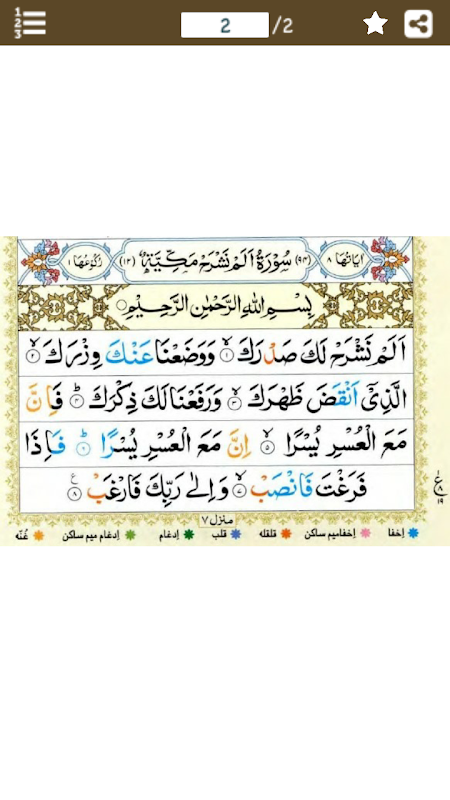 1
2
3
2 /2
اٰیَاتُهَا ٨ (٩٤) سُوْرَةُ اَلَمْ نَشْرَحْ مَكِّيَّةٌ (١٢) رُكُوْعُهَا ١
بِسْمِ اللّٰهِ الرَّحْمٰنِ الرَّحِيْمِ
اَلَمْ نَشْرَحْ لَكَ صَدْرَكَ ۙ‏ ١ وَوَضَعْنَا عَنْكَ وِزْرَكَ ۙ‏ ٢
الَّذِىْٓ اَنْقَضَ ظَهْرَكَ ۙ‏ ٣ وَرَفَعْنَا لَكَ ذِكْرَكَ ؕ‏ ٤ فَاِنَّ
مَعَ الْعُسْرِ يُسْرًا ۙ‏ ٥ اِنَّ مَعَ الْعُسْرِ يُسْرًا ؕ‏ ٦ فَاِذَا
فَرَغْتَ فَانْصَبْ ۙ‏ ٧ وَاِلٰى رَبِّكَ فَارْغَبْ ٨ ع
ع ٨ ١٩
منزل ٧
اِخفا اِخفامیم ساکن قلقله قلب اِدغام اِدغام میم ساکن غُنّه